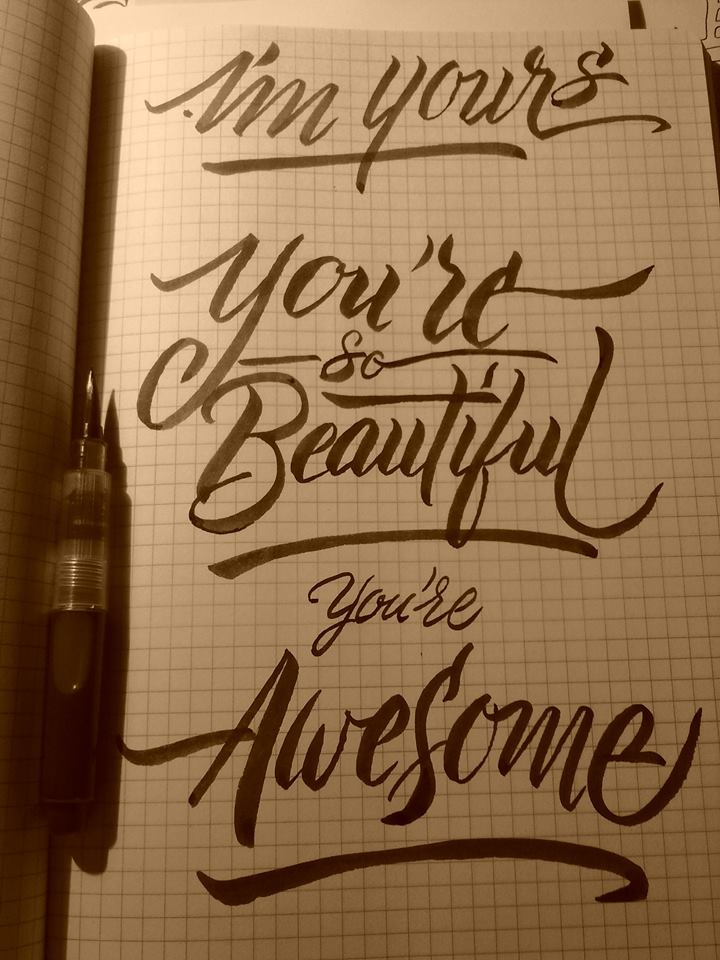 I'm yours
You're
so
Beautiful
You're
Awesome